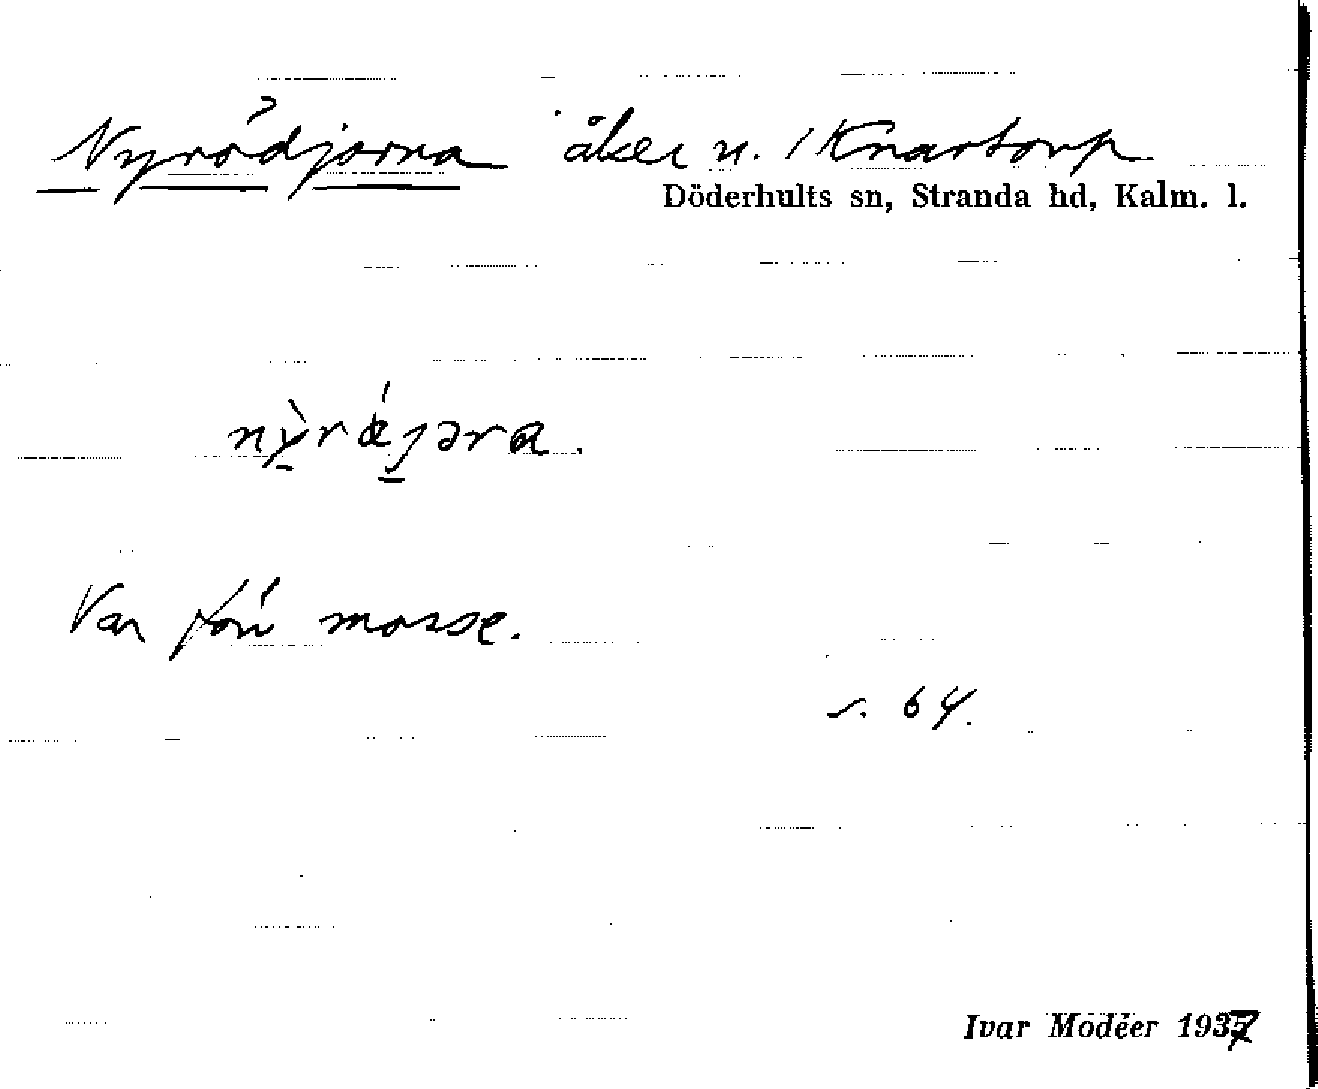 Nyrödjorna åker u. Knartorp
Döderhults sn, Stranda hd, Kalm. l.
nỳ̠rǿj̠əra.
Var förr mosse.
s. 64.
Ivar Modéer 1937